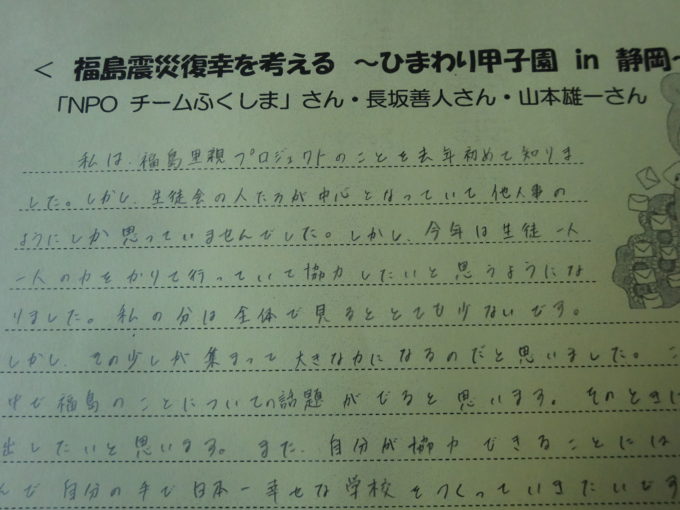 < 福島震災復幸を考える ～ひまわり甲子園 in 静岡～
「NPO チームふくしま」さん・長坂善人さん・山本雄一さん
私は、福島里親プロジェクトのことを去年初めて知りま
した。しかし、生徒会の人たちが中心となっていて他人事の
ようにしか思っていませんでした。しかし、今年は生徒一人
一人の力をかりて行っていて協力したいと思うようにな
りました。私の分は全体で見るととても少ないです。
しかし、その少しが集まって大きな力になるのだと思いました。こ
中で福島のことについての話題がでると思います。そのときに
出したいと思います。また、自分が協力できることには
んで自分の手で日本一幸せな学校をつくっていきたいです